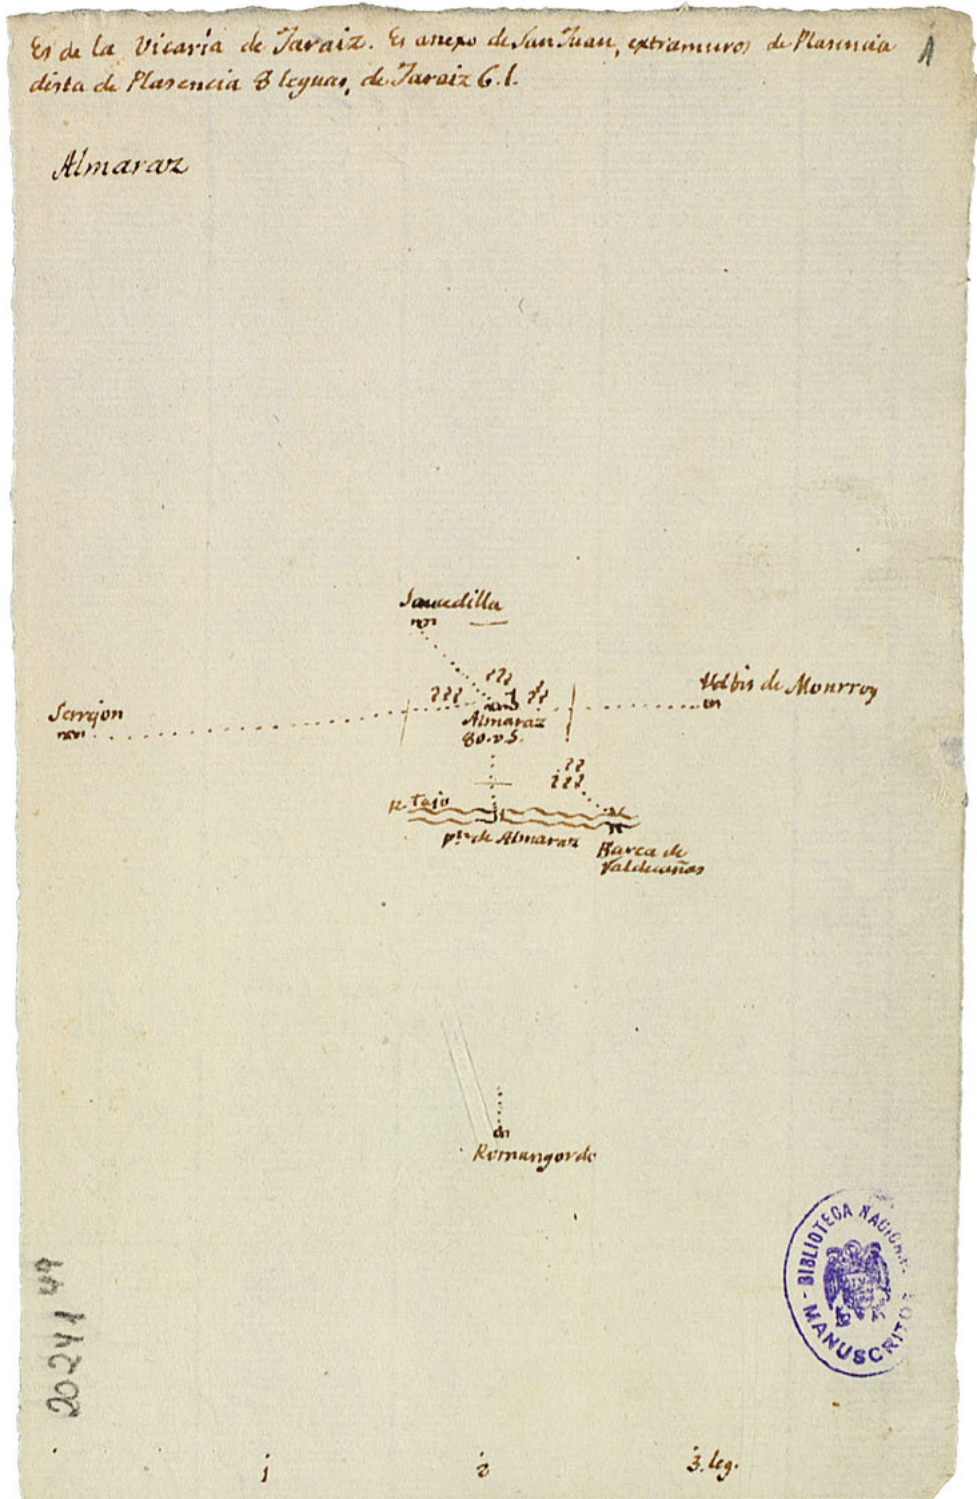 Es de la Vicaría de Jaraiz. Es anexo de San Juan, extramuros de Plasencia
dista de Plasencia 8 leguas, de Jaraiz 6. l.
1
Almaraz
Saucedilla
Serrejon
Belbis de Monrroy
Almaraz
80. v. S.
R. Tajo
pte. de Almaraz
Barca de
Valdecañas
Romangordo
BIBLIOTECA NACIONAL
MANUSCRITOS
20241 49
1
2
3. leg.